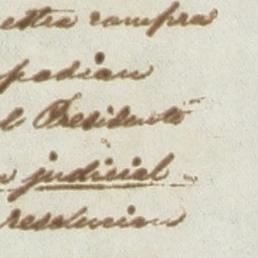 esta compra
podian
el Presidente
judicial
resolucion